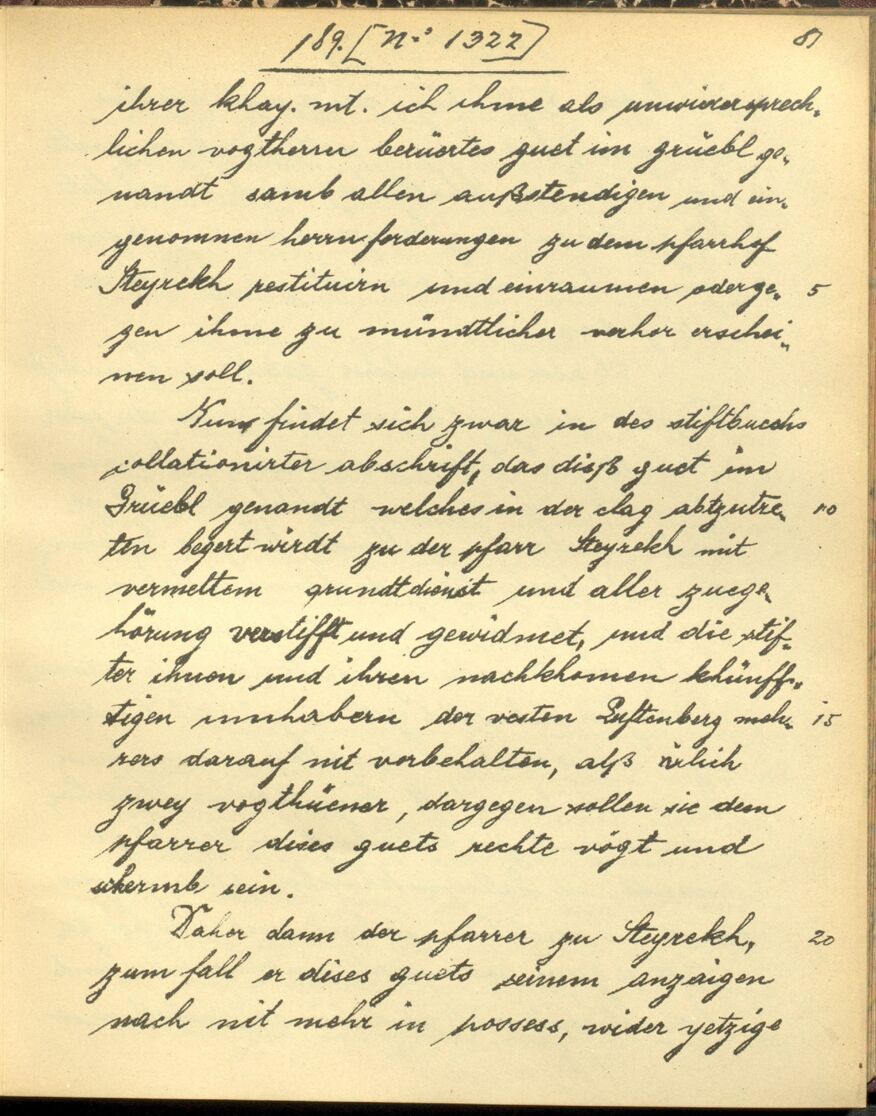 189. [N.° 1322]
81
ihrer khay. mt. ich ihme als unwidersprech„
lichen vogtherrn berüertes guet im grüebl ge„
nandt samb allen außstendigen und ein„
genomnen herrnforderungen zu dem pfarrhof
Steyrekh restituirn und einraumen oder ge„ 5
gen ihme zu mündtlicher verhor erschei„
nen soll.
Nun findet sich zwar in des stiftbuechs
collationirter abschrift, das diß guet im
Grüebl genandt welches in der clag abzutre„ 10
ten begert wirdt zu der pfarr Steyrekh mit
vermeltem grundtdienst und aller zuege„
hörung verstifft und gewidmet, und die stif„
ter ihnen und ihren nachkhomen khünff„
tigen innhabern der vesten Luftenberg meh„ 15
rers darauf nit vorbehalten, alß ärlich
zwey vogthüener, dargegen sollen sie dem
pfarrer dises guets rechte vögt und
schermb sein.
Daher dann der pfarrer zu Steyrekh, 20
zum fall er dises guets seinem anzaigen
nach nit mehr in possess, wider yetzige